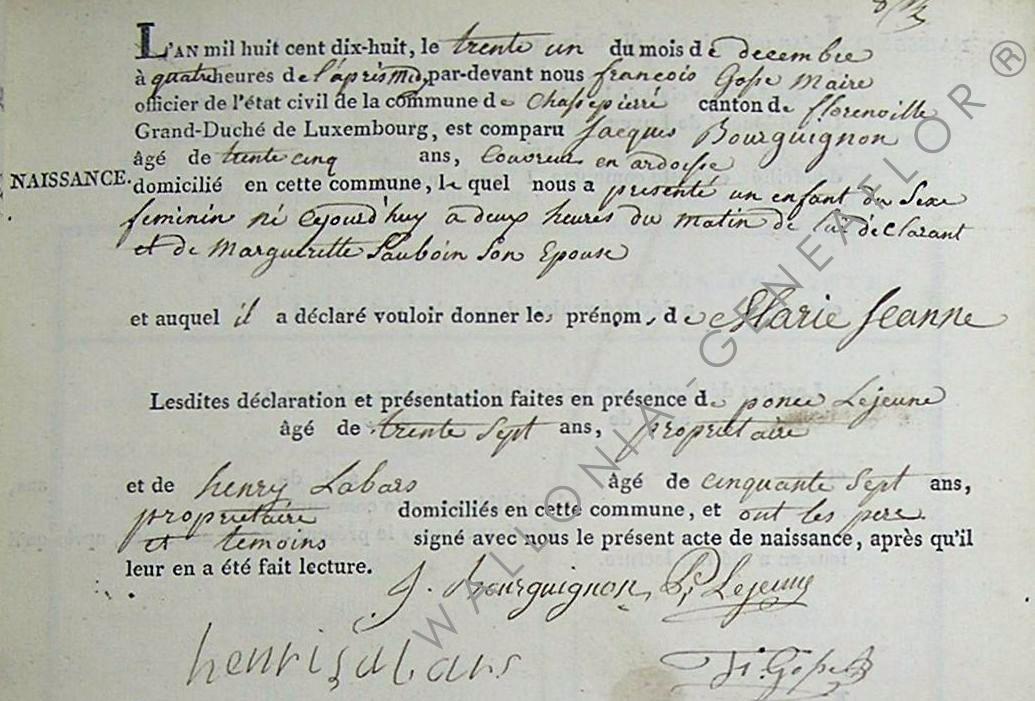 L'AN mil huit cent dix-huit, le trente un du mois de decembre
à quatre heures de l'après midy par-devant nous françois Gosse Maire
officier de l'état civil de la commune de Chassepierre canton de florenville
Grand-Duché de Luxembourg, est comparu Jacques Bourguignon
âgé de trente cinq ans, Couvreur en ardoisse
NAISSANCE. domicilié en cette commune, le quel nous a presenté un enfant du Sexe
feminin né cejourd'huy a deux heures du matin de lui déclarant
et de Marguerette Sauboin Son Epouse
et auquel il a déclaré vouloir donner les prénoms de Marie Jeanne
Lesdites déclaration et présentation faites en présence de ponce Lejeune
âgé de trente Sept ans, proprietaire
et de henry Labars âgé de cinquante Sept ans,
proprietaire domiciliés en cette commune, et ont les pere
et temoins signé avec nous le présent acte de naissance, après qu'il
leur en a été fait lecture.
J. Bourguignon P. Lejeune
henri labars
fr. Gosse
WALLONIA-GENEALOR ®